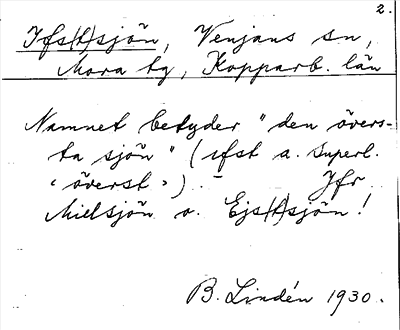 2.
Ifs(t)sjön, Venjans sn,
Mora tg, Kopparb. län
Namnet betyder "den övers-
ta sjön" (ifst a. superl.
"överst"). – Jfr
Mielsjön o. Ejs(t)sjön!
B. Lindén 1930.